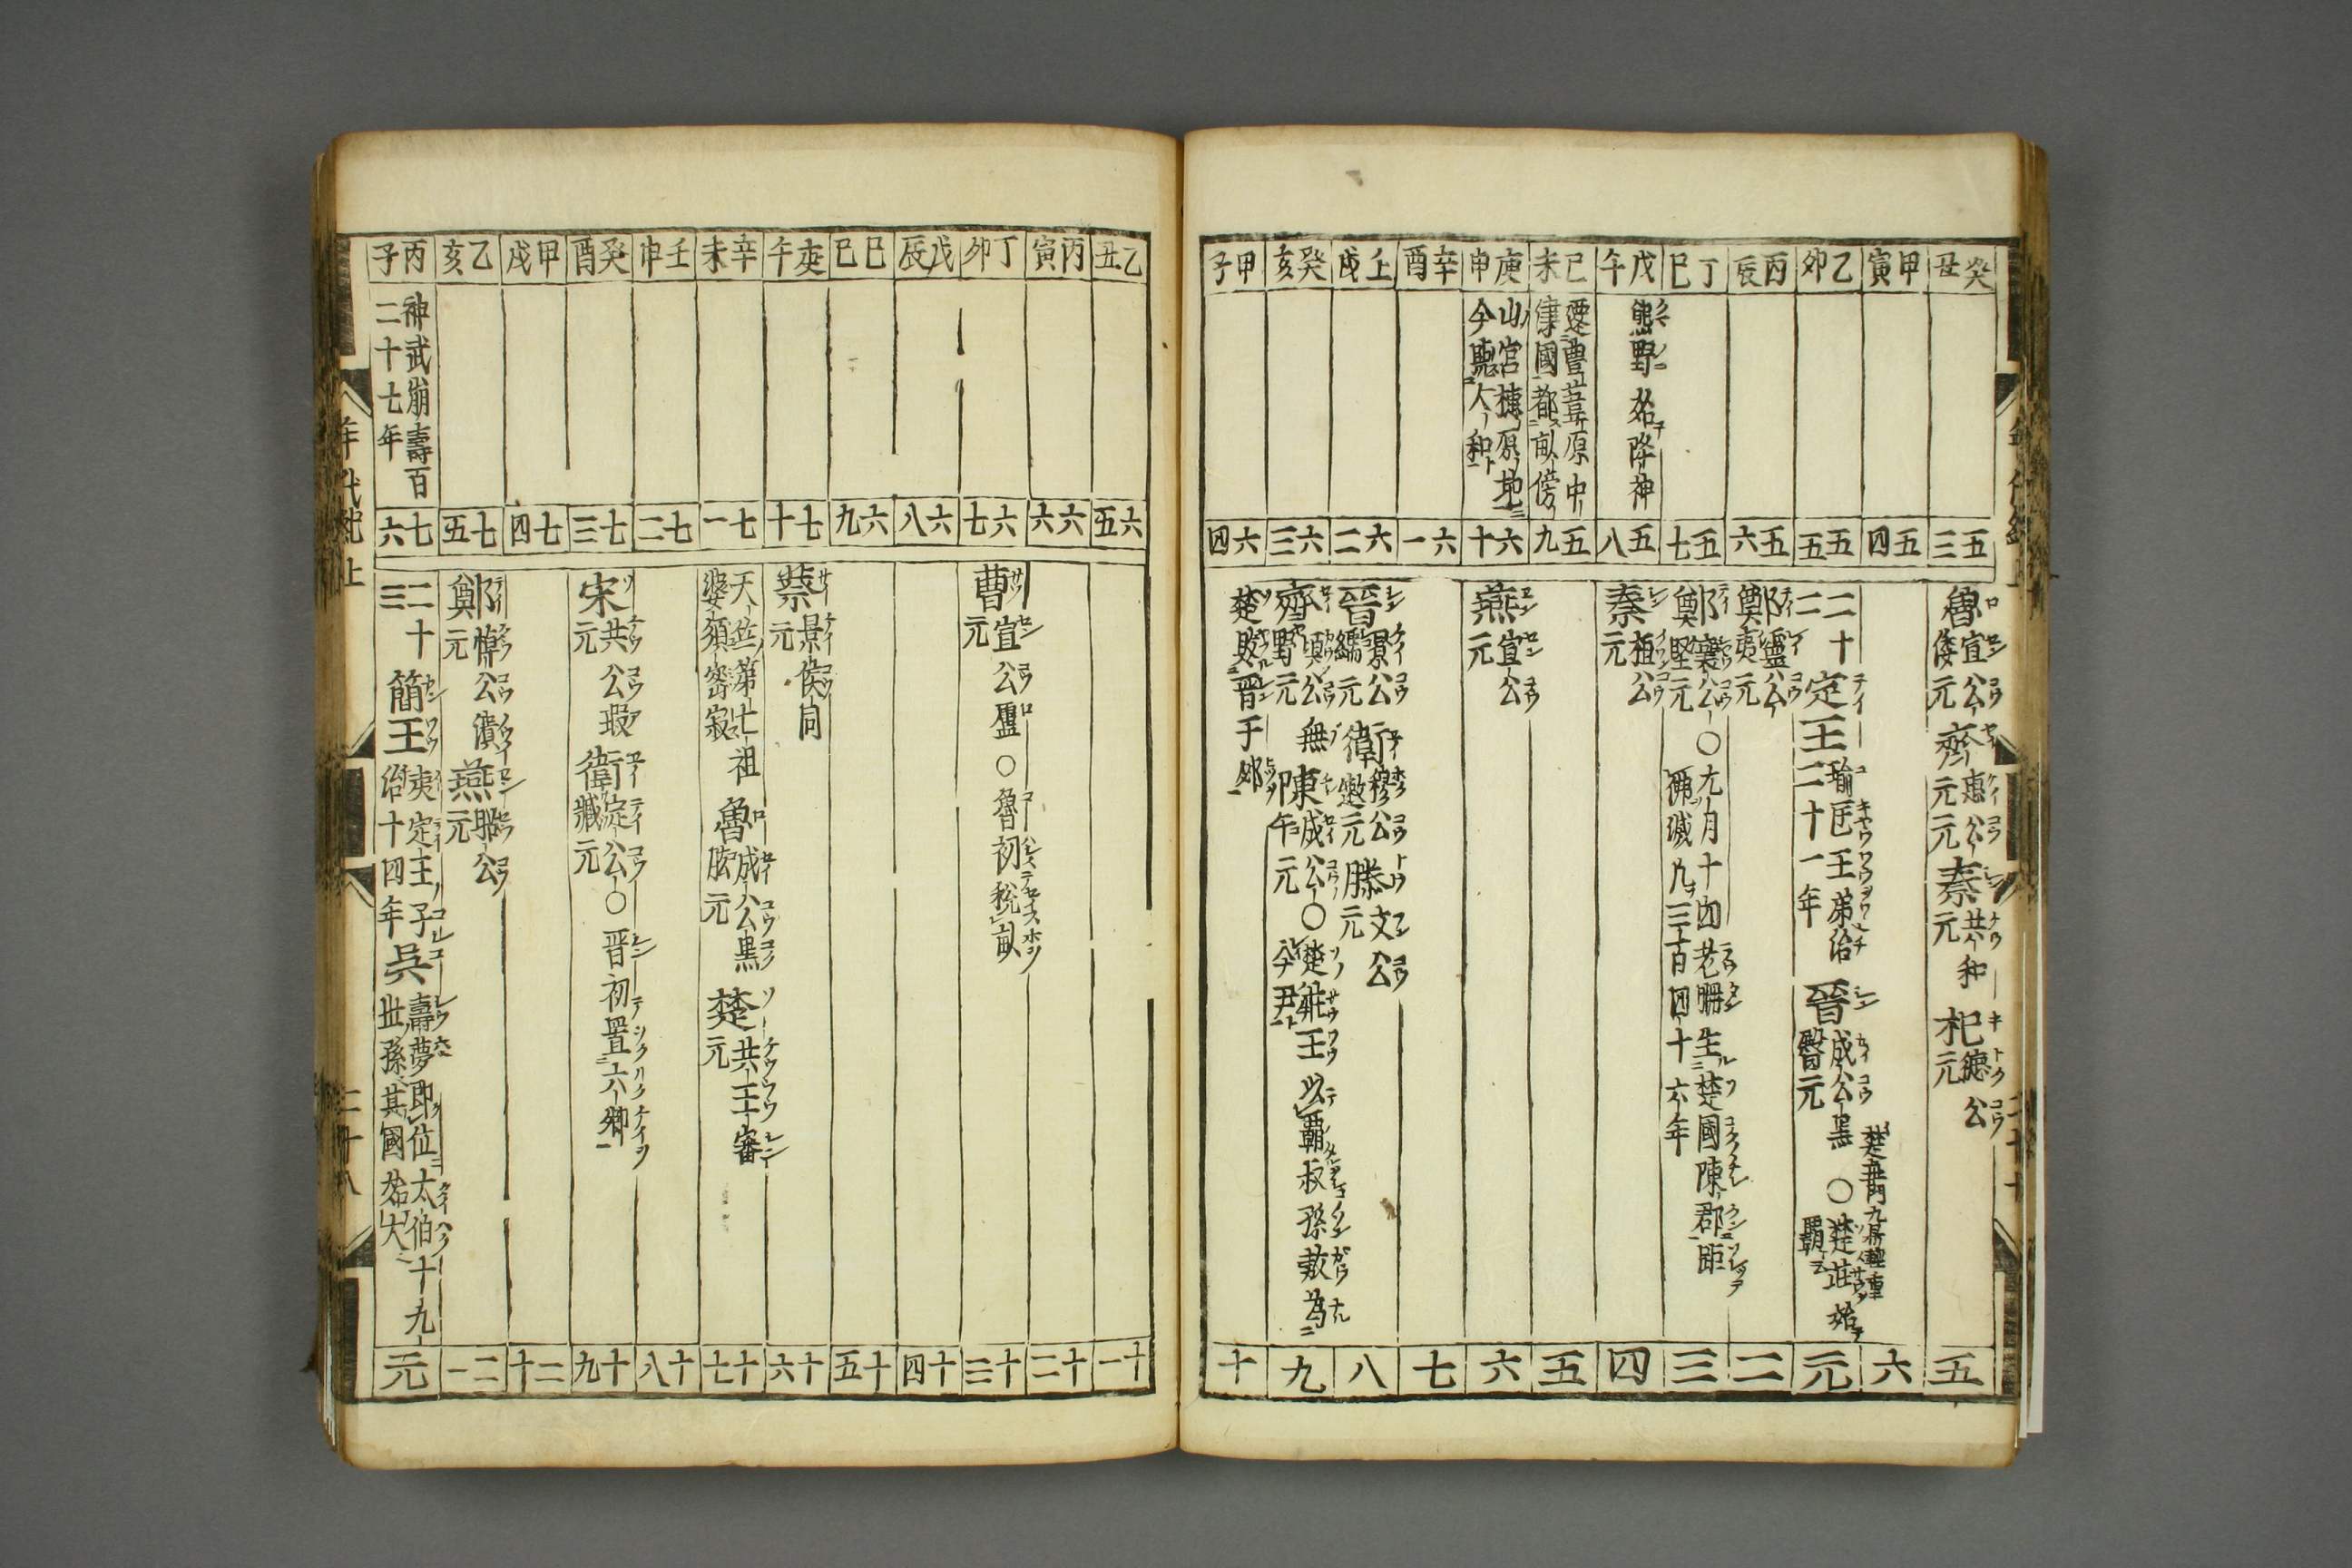 癸丑
五三
魯宣公倭元 齊惠公元元 秦共公和元 杞德公元
五
甲寅
五四
六
乙卯
五五
二十二 定王 瑜匡王弟治二十一年 晉成公黒臀元 〇楚莊始覇
楚問九鼎輕重
元
丙辰
五六
鄭靈公夷元
二
丁巳
五七
鄭襄公堅元 〇九月十四老聃生楚國陳郡距佛滅九三百四十六年
三
戊午
熊野始降神
五八
秦桓公元
四
己未
遷豊葦原中
傳國都畝傍
五九
五
庚申
山宮棟原地
今聽人和
六十
燕宣公元
六
辛酉
六一
七
壬戌
六二
晉景公孺元 衛穆公遬元 滕文公元
八
癸亥
六三
齊頃公無野元 陳成公午元 〇楚莊王以覇叔孫敖為令尹
九
甲子
六四
楚敗晋于邲
十
乙丑
六五
十一
丙寅
六六
十二
丁卯
六七
曹宣公廬元 〇魯初税畝
十三
戊辰
六八
十四
己巳
六九
十五
庚午
七十
蔡景侯同元
十六
辛未
七一
天竺第七祖婆須密寂 魯成公黒肱元 楚共王審元
十七
壬申
七二
十八
癸酉
七三
宋共公瑕元 衛定公臧元 〇晋初置六卿
十九
甲戌
七四
二十
乙亥
七五
鄭悼公潰元 燕昭公元
二一
丙子
神武崩壽百
二十七年
七六
二十三 簡王 夷定王子治十四年 呉 壽夢即位太伯十九世孫其國始大
元
年代紀上
二十八